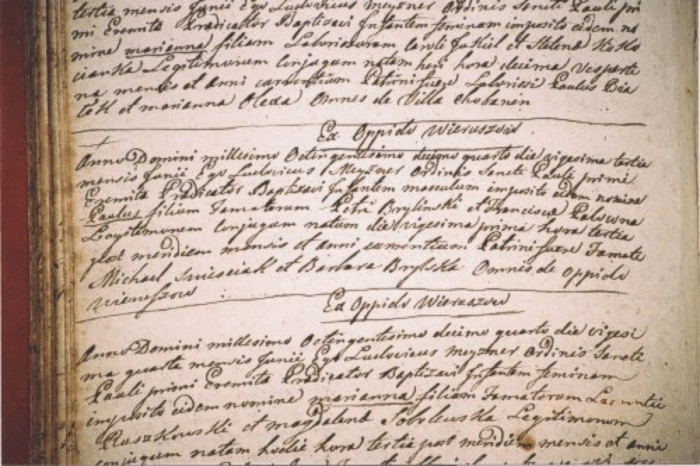 tertia mensis Junii Ego Ludovicus Meyzner Ordinis Sancti Pauli pri
mi Eremita Prædicator Baptisavi Infantem feminam imposito eidem no
mine marianna filiam Laboriosorum Caroli et Helena
Legitimorum conjugum natam heri hora decima vesperti
na mensis et anni currentium Patrini fuere Laboriosi Paulus Bia
tek et marianna Olexa Omnes de Villa Chobanin
Ex Oppido Wieruszow
Anno Domini millesimo Octingentesimo decimo quarto die vigesima tertia
mensis Junii Ego Ludovicus Meyzner Ordinis Sancti Pauli primi
Eremita Prædicator Baptisavi Infantem masculum imposito eidem nomine
Paulus filium Famatorum Petri Brylinski et Francisca
Legitimorum conjugum natum die vigesima prima hora tertia
post meridiem mensis et anni currentium Patrini fuere Famate
Michael et Barbara Brylska Omnes de Oppido
Wieruszow
Ex Oppido Wieruszow
Anno Domini millesimo Octingentesimo decimo quarto die vigesi
ma quarta mensis Junii Ego Ludovicus Meyzner Ordinis Sancti
Pauli primi Eremita Prædicator Baptisavi Infantem feminam
imposito eidem nomine marianna filiam Famatorum
Pluszkowski et magdalena Sobolewska Legitimorum
conjugum natam hodie hora tertia post meridiem mensis et anni